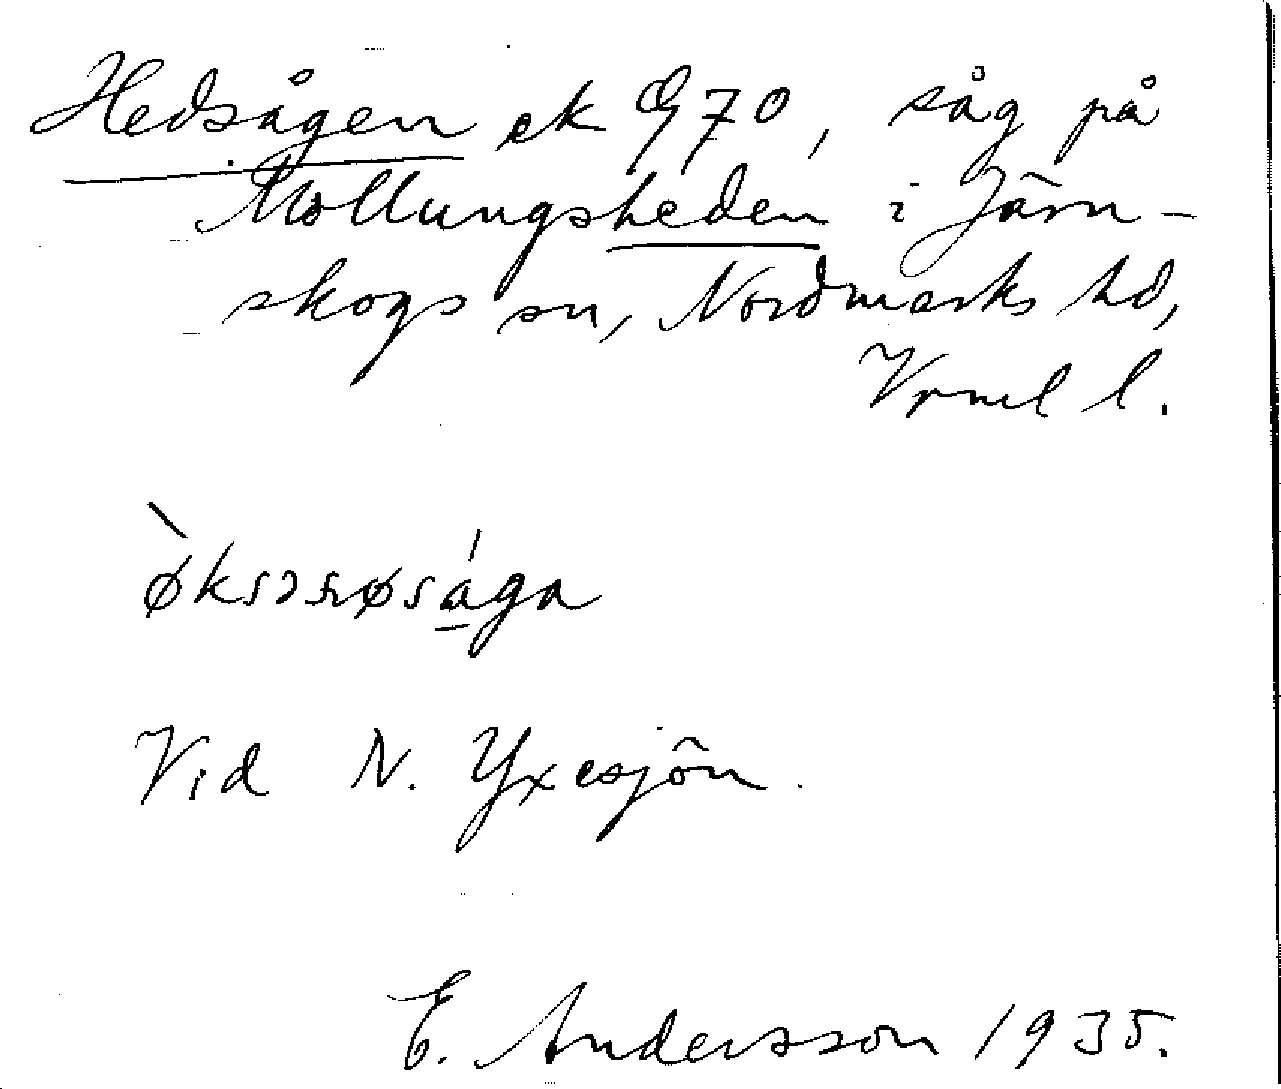 Hedsågen ek G70, såg på
Mollungsheden i Järn-
skogs sn, Nordmarks hd,
Vrml l.
Vid N. Yxesjön.
E. Andersson 1935.